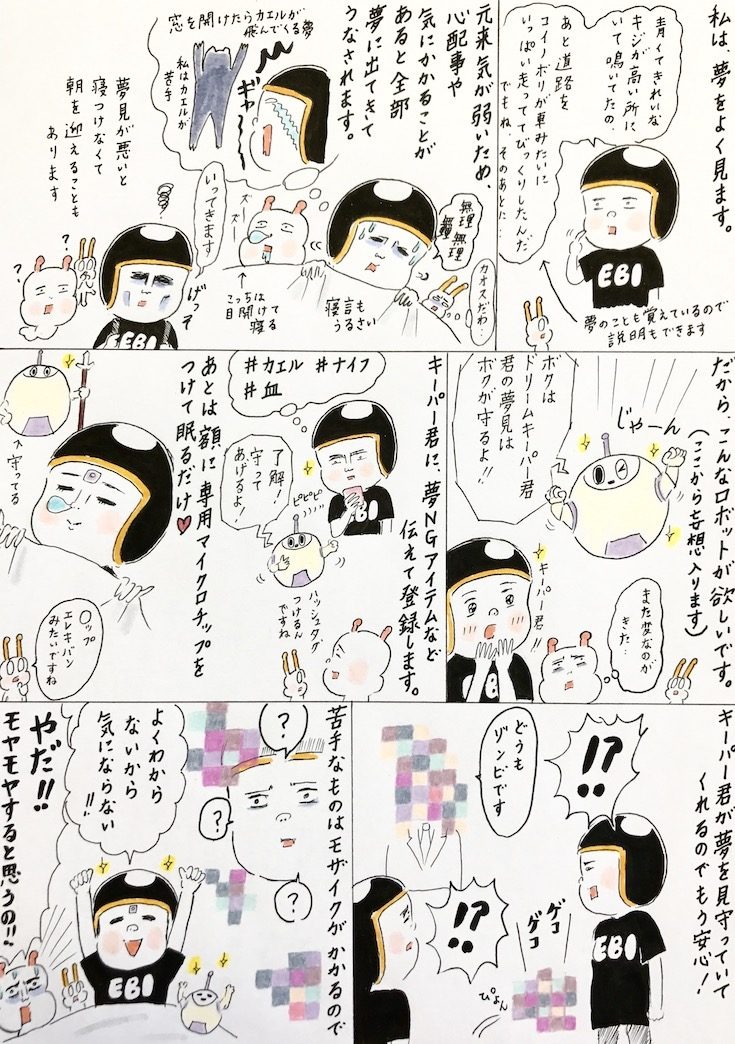 私は、夢をよく見ます。
青くてきれいな
キジが高い所に
いて鳴いてたの。
あと道路を
コイノボリが車みたいに
いっぱい走っててびっくりしたんだ
でもね、そのあとに…
EBI
夢のことも覚えているので
説明もできます
元来気が弱いため、
心配事や
気にかかることが
あると全部
夢に出てきて
うなされます。
窓を開けたらカエルが
飛んでくる夢
私はカエルが
苦手
ギャーーー
無理無理
無理
カオスだわ…
ズー
ズー
寝言も
うるさい
こっちは
目開けて
寝る
夢見が悪いと
寝つけなくて
朝を迎えることも
あります
いってきます
げっそ
EBI
?
?
だから、こんなロボットが欲しいです。
(ここから妄想入ります)
じゃーん
ボクは
ドリームキーパー君
君の夢見は
ボクが守るよ!!
キーパー君!!
また変なのが
きた…
EBI
キーパー君に、夢NGアイテムなど
伝えて登録します。
#カエル #ナイフ
#血
了解!
守って
あげるよ!
ピピピピ
EBI
ハッシュタグ
つけるん
ですね
あとは額に専用マイクロチップを
つけて眠るだけ♥
↑守ってる
〇ップ
エレキバン
みたいですね
キーパー君が夢を見守っていて
くれるのでもう安心!
!?
どうも
ゾンビです
EBI
ゲコ
ゲコ
!?
ぴょん
苦手なものはモザイクがかかるので
?
?
?
よくわから
ないから
気にならない
!!
EBI
やだ!!
モヤモヤすると思うの!!